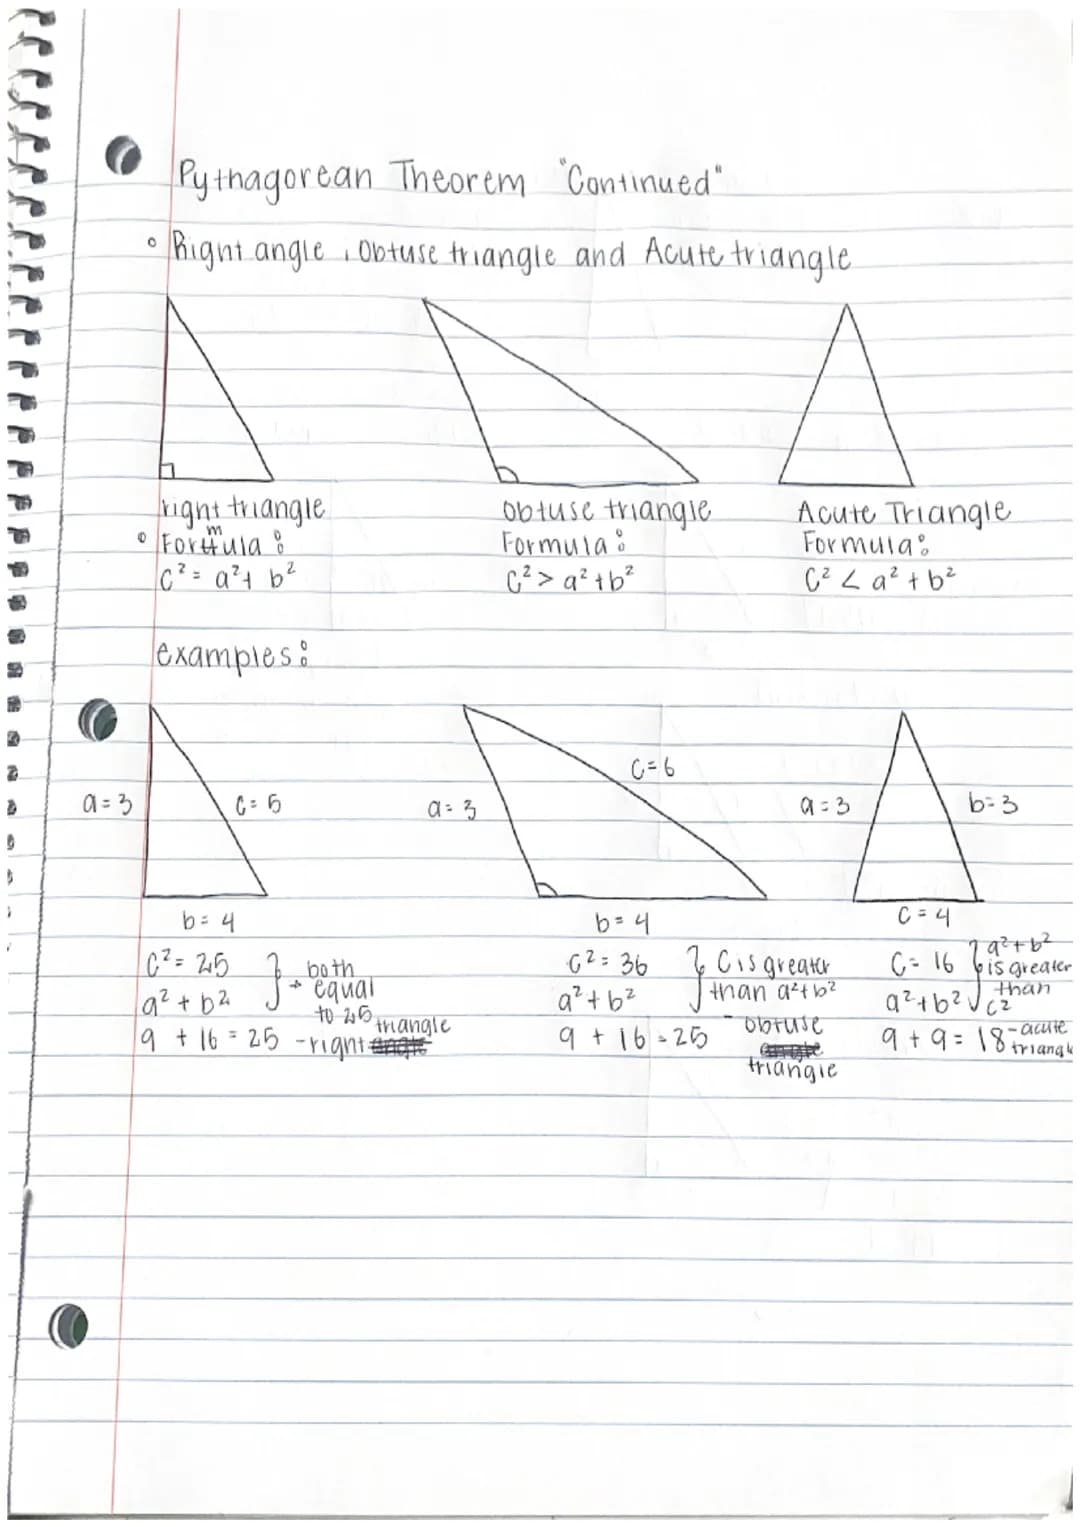 Pythagorean Theorem "Continued"
° Right angle, Obtuse triangle and Acute triangle
right triangle
° Formula:
c² = a² + b²
obtuse triangle
Formula:
C² > a² + b²
Acute Triangle
Formula:
C² < a² + b²
examples:
a = 3
c = 5
b = 4
c² = 25
a² + b²
} → both equal to 25
9 + 16 = 25 - right triangle
a = 3
C = 6
b = 4
C² = 36
a² + b²
} C is greater
than a² + b²
9 + 16 = 25
- obtuse
triangle
a = 3
b = 3
C = 4
C = 16
a² + b²
} a² + b²
is greater
than
c²
9 + 9 = 18 - acute